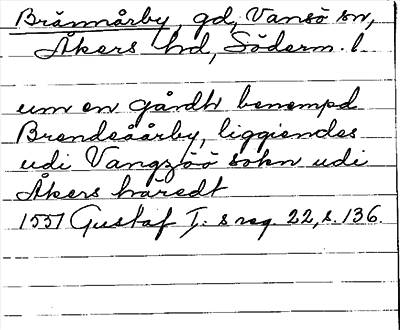 Brännårby, gd, Vansö sn,
Åkers hd, Söderm. l.
um en gårdh benempd
Brendeåårby, liggiendes
udi Vangzöö sokn udi
Åkers häredt
1551 Gustaf I:s reg. 22, s. 136.